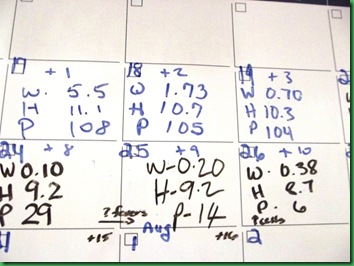 17 +1
W. 5.5
H 11.1
P 108
18 +2
W 1.73
H 10.7
P 105
19 +3
W 0.70
H 10.3
P 104
24 +8
W 0.10
H 9.2
P 29
? fevers
25 +9
W-0.20
H-9.2
P-14
26 +10
W. 0.38
H 8.7
P. 6
+15
Aug
1 +16
2